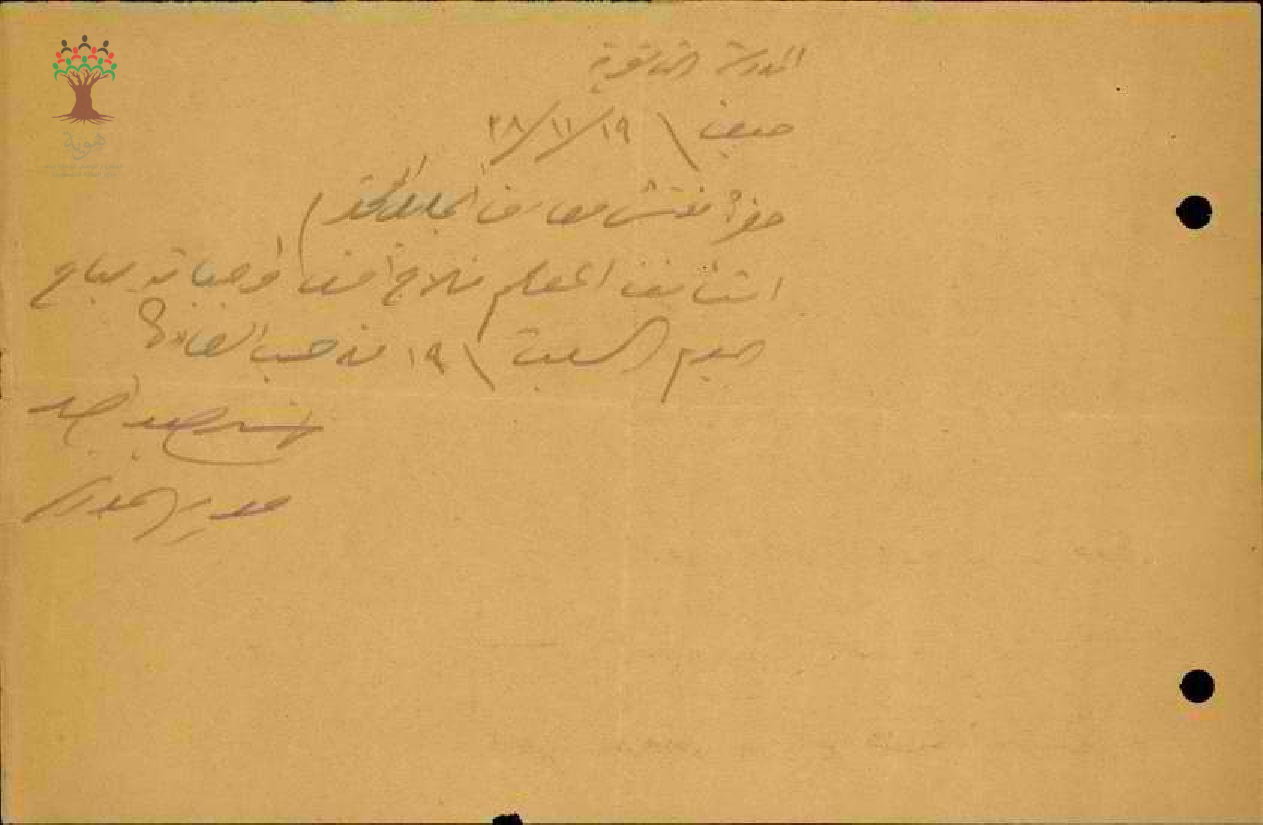 هوية
المدرسة الثانوية
صفد \ ١٩/١١/٢٨
حضرة مفتش معارف الجليل المحترم
استأنف المعلم فلاح افندي واجباته صباح
اليوم السبت \ ١٩ منه حسب العادة
مدير المدرسة